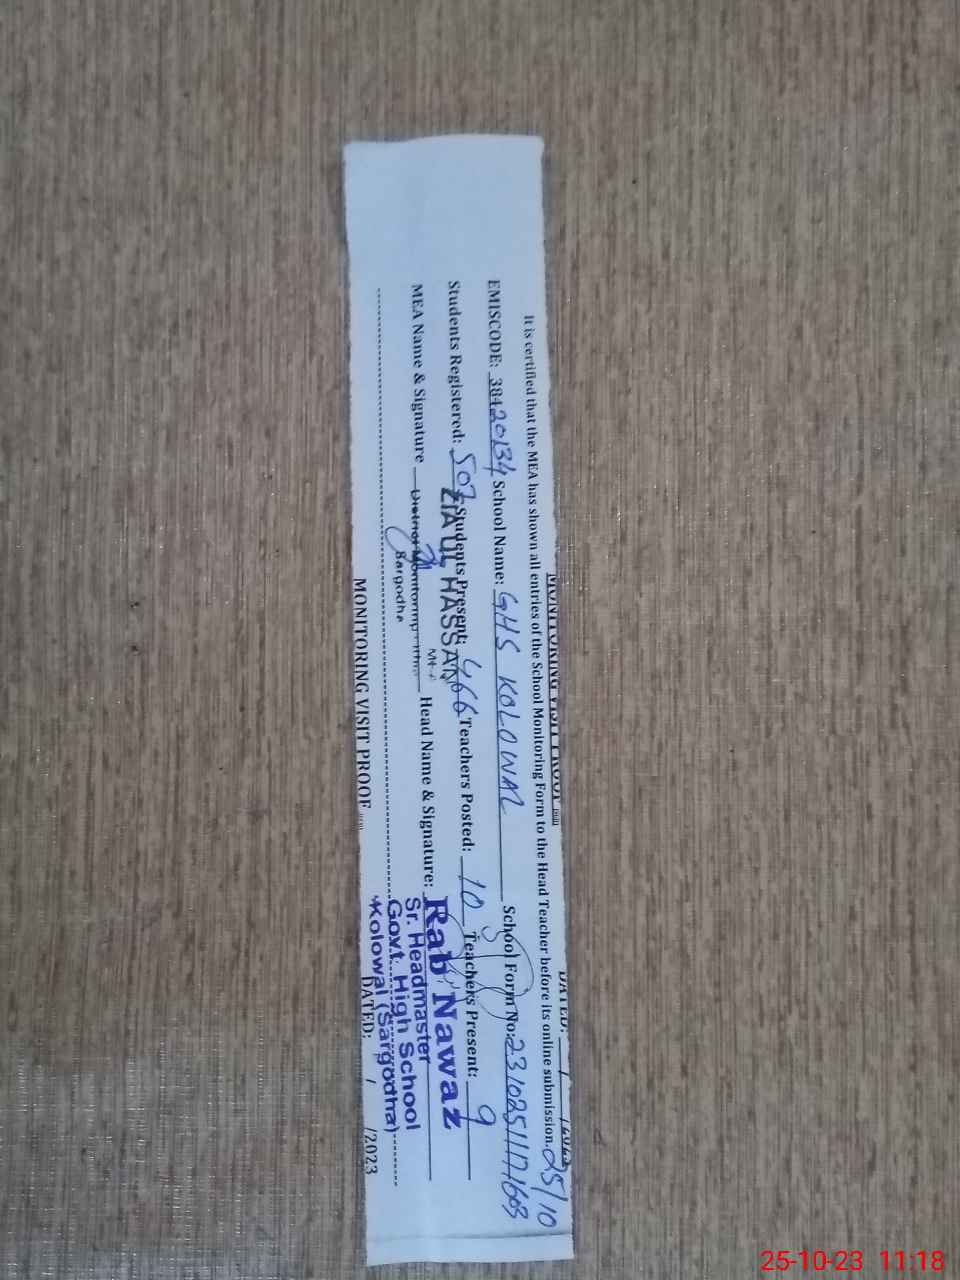 MONITORING VISIT PROOF
DATED: / /2023
It is certified that the MEA has shown all entries of the School Monitoring Form to the Head Teacher before its online submission. 25/10
EMISCODE: 38420134 School Name: GHS KOLOWAL School Form No:
Students Registered: 507 Students Present: 466 Teachers Posted: 10 Teachers Present: 9
ZIA UL HASSAN
MEA Name & Signature District Monitoring Head Name & Signature: Rab Nawaz
Sargodha
Sr. Headmaster
Govt. High School
Kolowal (Sargodha)
MONITORING VISIT PROOF DATED: / /2023
25-10-23 11:18